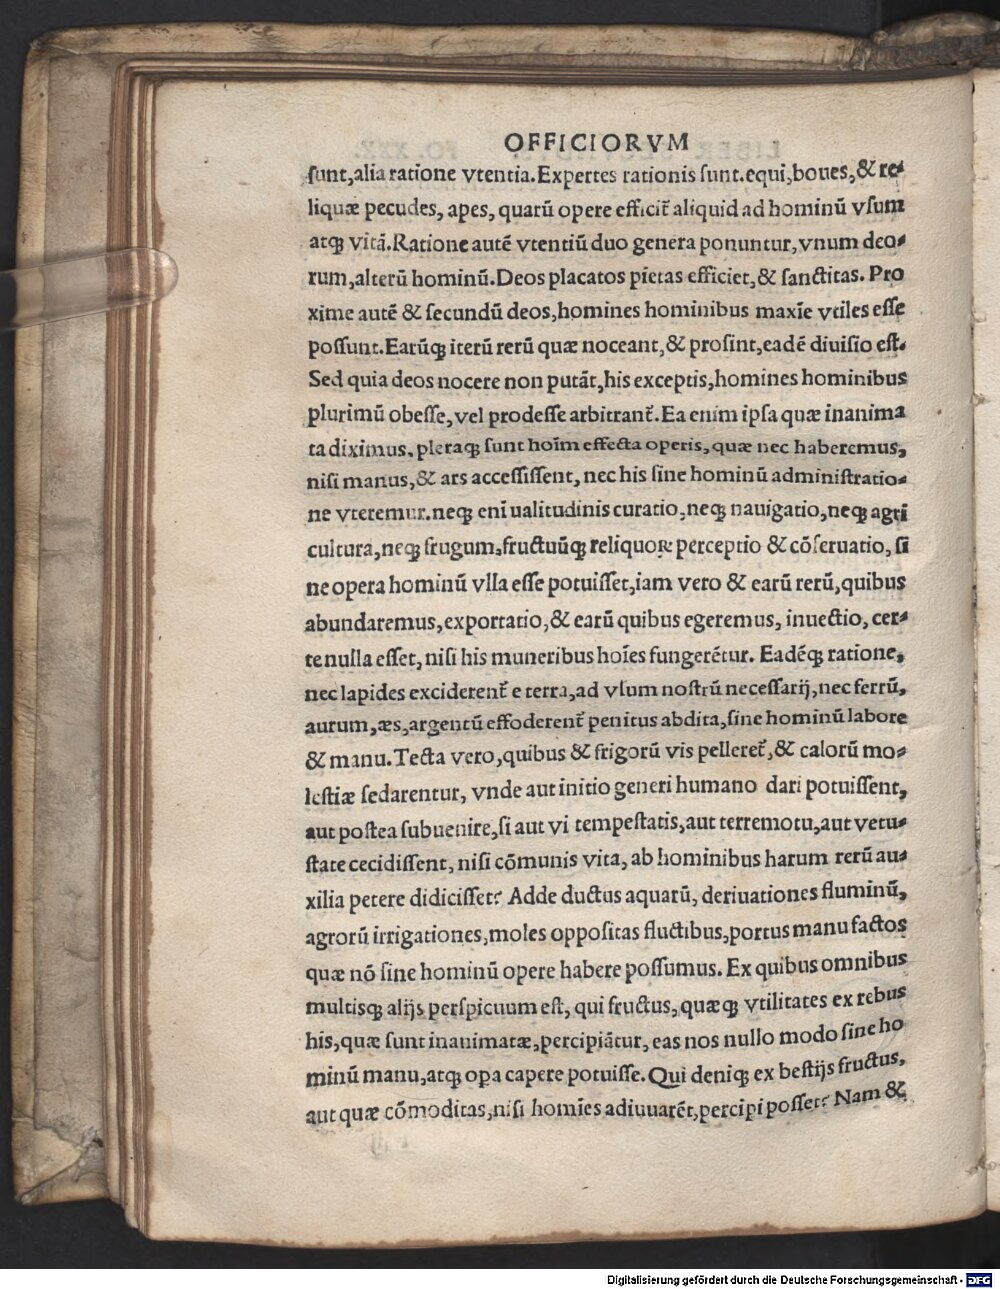 OFFICIORVM
sunt,alia ratione vtentia.Expertes rationis sunt.equi,boues,& re-
liquæ pecudes, apes, quarū opere efficit̄ aliquid ad hominū vsum
atq; vitā.Ratione autē vtentiū duo genera ponuntur,vnum deo-
rum,alterū hominū.Deos placatos pietas efficiet,& sanctitas. Pro
xime autē & secundū deos,homines hominibus maxīe vtiles esse
possunt.Earūq; iterū rerū quæ noceant,& prosint,eadē diuisio est.
Sed quia deos nocere non putāt,his exceptis,homines hominibus
plurimū obesse,vel prodesse arbitrant̄.Ea enim ipsa quæ inanima
ta diximus.pleraq; sunt hoīm effecta operis, quæ nec haberemus,
nisi manus,& ars accessissent, nec his sine hominū administratio-
ne vteremur.neq; enī ualitudinis curatio,neq; nauigatio,neq; agri
cultura,neq; frugum,fructuūq; reliquoꝝ perceptio & cōseruatio, si
ne opera hominū vlla esse potuisset,iam vero & earū rerū,quibus
abundaremus,exportatio,& earū quibus egeremus, inuectio, cer-
te nulla esset, nisi his muneribus hoīes fungerētur. Eadēq; ratione,
nec lapides exciderent̄ e terra,ad vsum nostrū necessarij,nec ferrū,
aurum,æs,argentū effoderent̄ penitus abdita,sine hominū labore
& manu.Tecta vero,quibus & frigorū vis pelleret̄,& calorū mo-
lestiæ sedarentur, vnde aut initio generi humano dari potuissent,
aut postea subuenire,si aut vi tempestatis,aut terremotu,aut vetu-
state cecidissent, nisi cōmunis vita, ab hominibus harum rerū au-
xilia petere didicisset? Adde ductus aquarū, deriuationes fluminū,
agrorū irrigationes,moles oppositas fluctibus,portus manu factos
quæ nō sine hominū opere habere possumus. Ex quibus omnibus
multisq; alijs perspicuum est, qui fructus, quæq; vtilitates ex rebus
his,quæ sunt inanimatæ,percipiātur, eas nos nullo modo sine ho
minū manu,atq; opa capere potuisse. Qui deniq; ex bestijs fructus,
aut quæ cōmoditas,nisi homīes adiuuarēt,percipi posset? Nam &
Digitalisierung gefördert durch die Deutsche Forschungsgemeinschaft - DFG